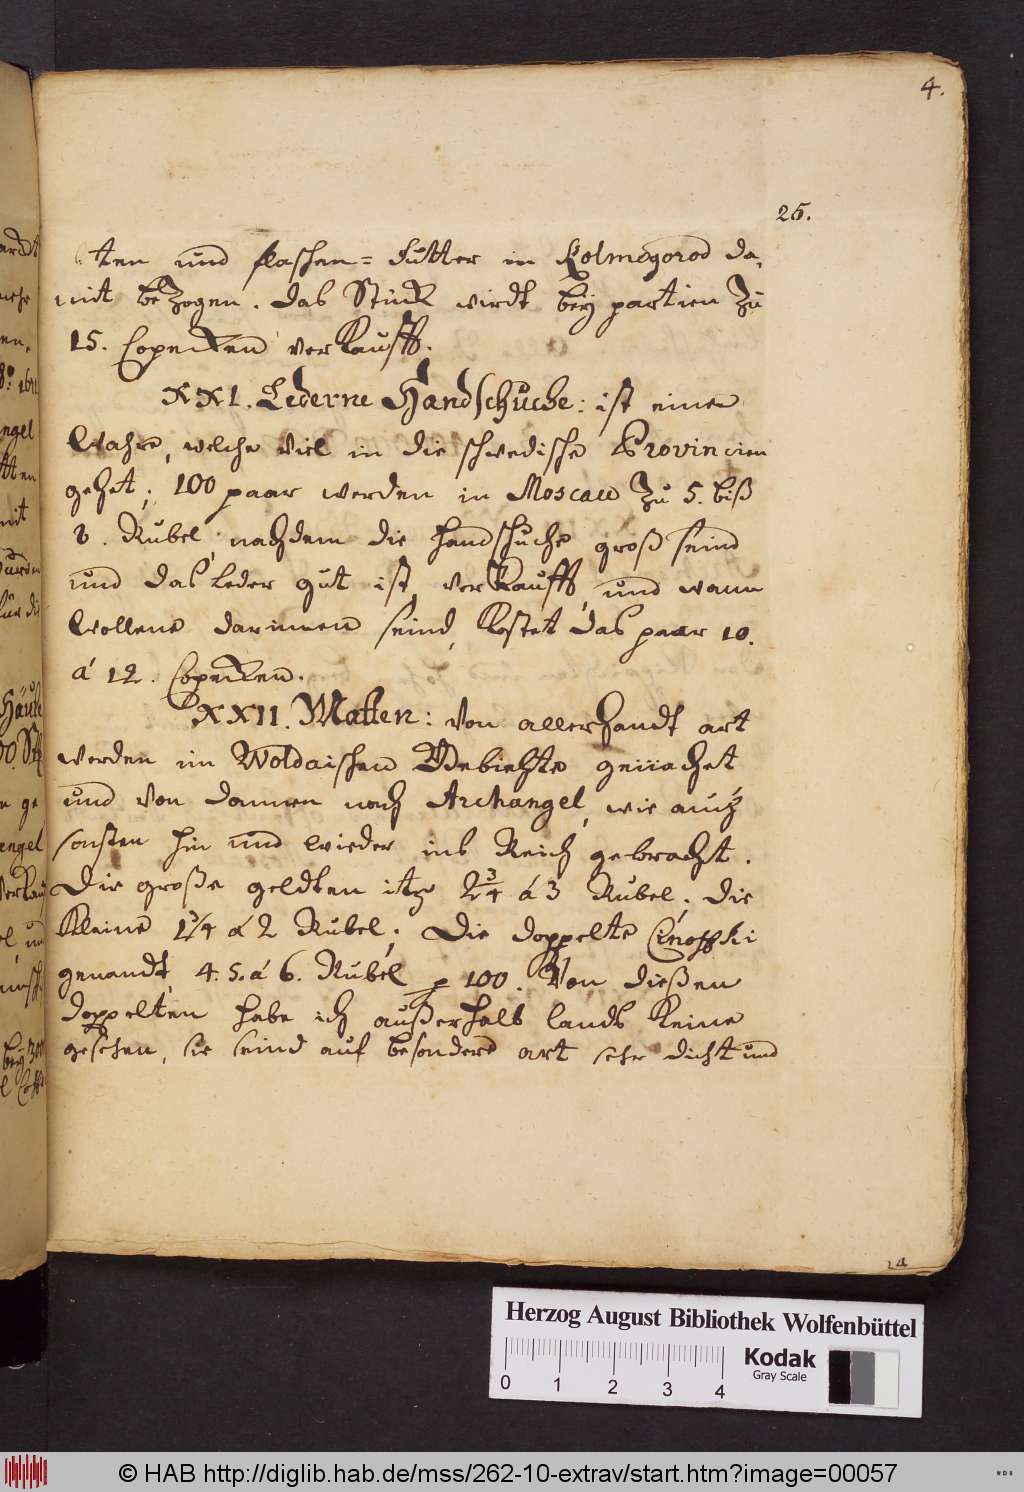 4.
25.
ten und flaschen= Futter in Kolmogorod da,
mit beZogen. das Stück wirdt beÿ partien Zu
15. Copecken verKaufft.
XXI. Lederne HandSchuche: ist eine
Wahre, welche viel in die schwedische Provincien
gehet; 100 paar werden in Moscau Zu 5. biß
8. Rubel, nachdem die handschuche groß seind
und das Leder gut ist, verKaufft, und wann
Wollene darinnen seind, Kostet das paar 10.
á 12. Copecken.
XXII. Matten: Von allerhandt art
werden im Woldaischen Gebiehte gemachet
und von dannen nach Archangel, wie auch
sonsten hin und wieder ins Reich gebracht.
Die große geldten itz 2¾ á 3 Rubel; die
Kleine 1¾ á 2 Rubel; Die doppelte
genandt, 4. 5. á 6. Rubel p 100. Von dießen
doppelten habe ich außerhalb lands Keine
gesehen, sie seind auf besondere art sehr dicht und
Herzog August Bibliothek Wolfenbüttel
0 1 2 3 4
Kodak
Gray Scale
© HAB http://diglib.hab.de/mss/262-10-extrav/start.htm?image=00057